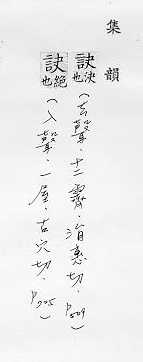 集韻
訣決也(去聲.十二霽.消惠切.P509)
訣絕也(入聲.一屋.古穴切.P705)